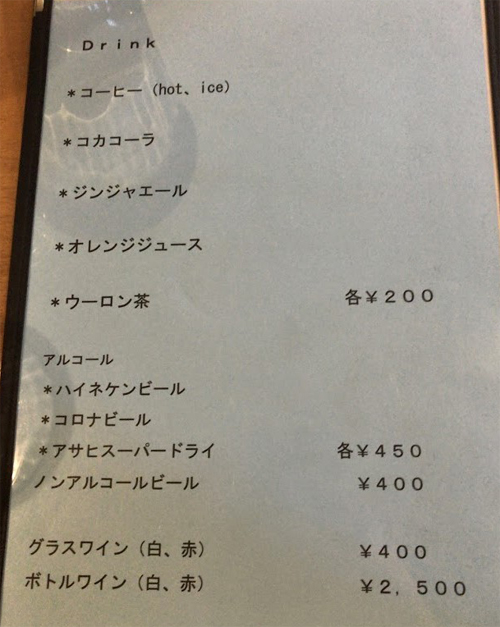 Ｄｒｉｎｋ
＊コーヒー（hot、ice）
＊コカコーラ
＊ジンジャエール
＊オレンジジュース
＊ウーロン茶 各￥２００
アルコール
＊ハイネケンビール
＊コロナビール
＊アサヒスーパードライ 各￥４５０
ノンアルコールビール ￥４００
グラスワイン（白、赤） ￥４００
ボトルワイン（白、赤） ￥２，５００